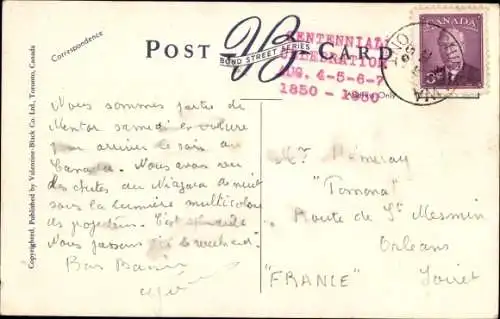 Correspondence
POST CARD
BOND STREET SERIES
CENTENNIAL
CELEBRATION
AUG. 4-5-6-7
1850 - 1950
Address Only
CANADA
Copyrighted. Published by Valentine-Black Co. Ltd., Toronto, Canada
Nous sommes partis de
Mentor samedi en voiture
pour arriver le soir au
Canada. Nous avons vu
des chutes du Niagara de nuit
sous la lumière multicolore
des projecteurs. C'est splendide
Nous passons ici le weekend.
Bons Baisers
Mr Mémeray
"Pomona"
Route de St Mesmin
Orleans
"FRANCE" Loiret